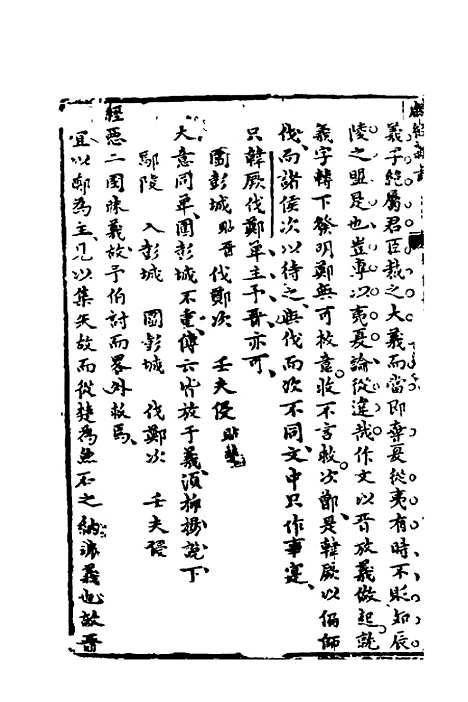 義字絕屬君臣裁之大義而當即奪夏從夷有時不貶知辰
陵之盟是也豈專以夷夏論從違哉作文以晉放義做起就
義字轉下發明鄭無可救意故不言救次鄭是韓厥以偏師
伐而諸侯次以待之與伐而次不同文中只作事寔
只韓厥伐鄭單主予晉亦可
圍彭城 伐鄭次 壬夫侵
大意同單圍彭城不重傳六皆放于義須抑揚說下
鄢陵 入彭城 圍彭城 伐鄭次 壬夫侵
經惡二國昧義故予伯討而畧外救焉
宜以鄭為主以集矢故而從楚為無不之納流義也故晉